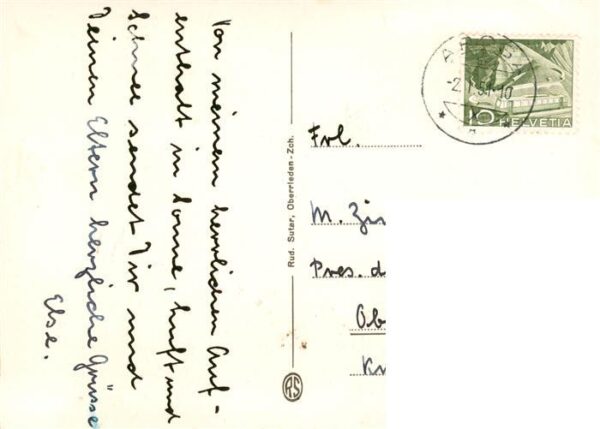 Von meinem herrlichen Auf-
enthalt in Sonne, Luft und
Schnee sendet Dir und
Deinen Eltern herzliche Grüsse
Else.
Rud. Suter, Oberrieden-Zch.
RS
Frl.
M.
Pres. d
Ob
10 HELVETIA